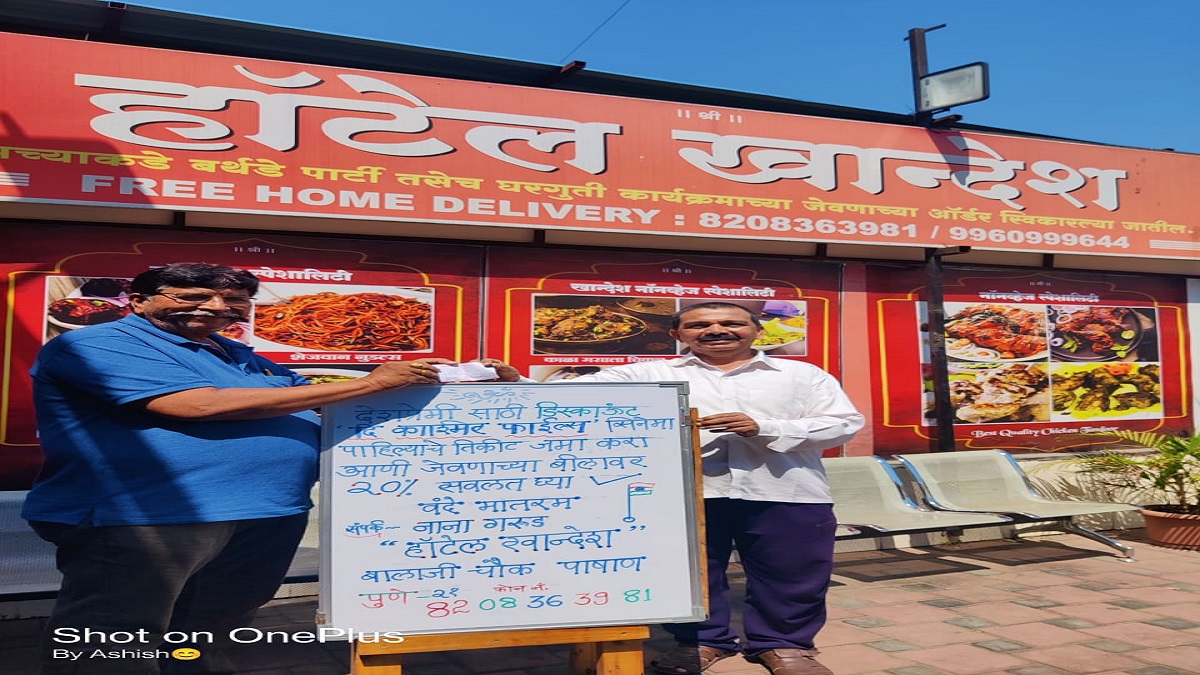 ॥ श्री ॥
हॉटेल खान्देश
मच्याकडे बर्थडे पार्टी तसेच घरगुती कार्यक्रमाच्या जेवणाच्या ऑर्डर स्विकारल्या जातील.
FREE HOME DELIVERY : 8208363981 / 9960999644
॥ श्री ॥
स्पेशालिटी
शेजवान नुडल्स
॥ श्री ॥
खान्देश नॉनव्हेज स्पेशालिटी
काळा मसाला
नॉनव्हेज स्पेशालिटी
Best Quality Chicken Tandoor
देशप्रेमी साठी डिस्काऊंट
'द काश्मिर फाईल्स' सिनेमा
पाहिल्याचे तिकीट जमा करा
आणी जेवणाच्या बीलावर
20% सवलत घ्या
वंदे मातरम
संपर्क:- नाना गरुड
"हॉटेल खान्देश"
बालाजी चौक पाषाण
फोन नं.
पुणे -२१ 82 08 36 39 81
Shot on OnePlus
By Ashish😊